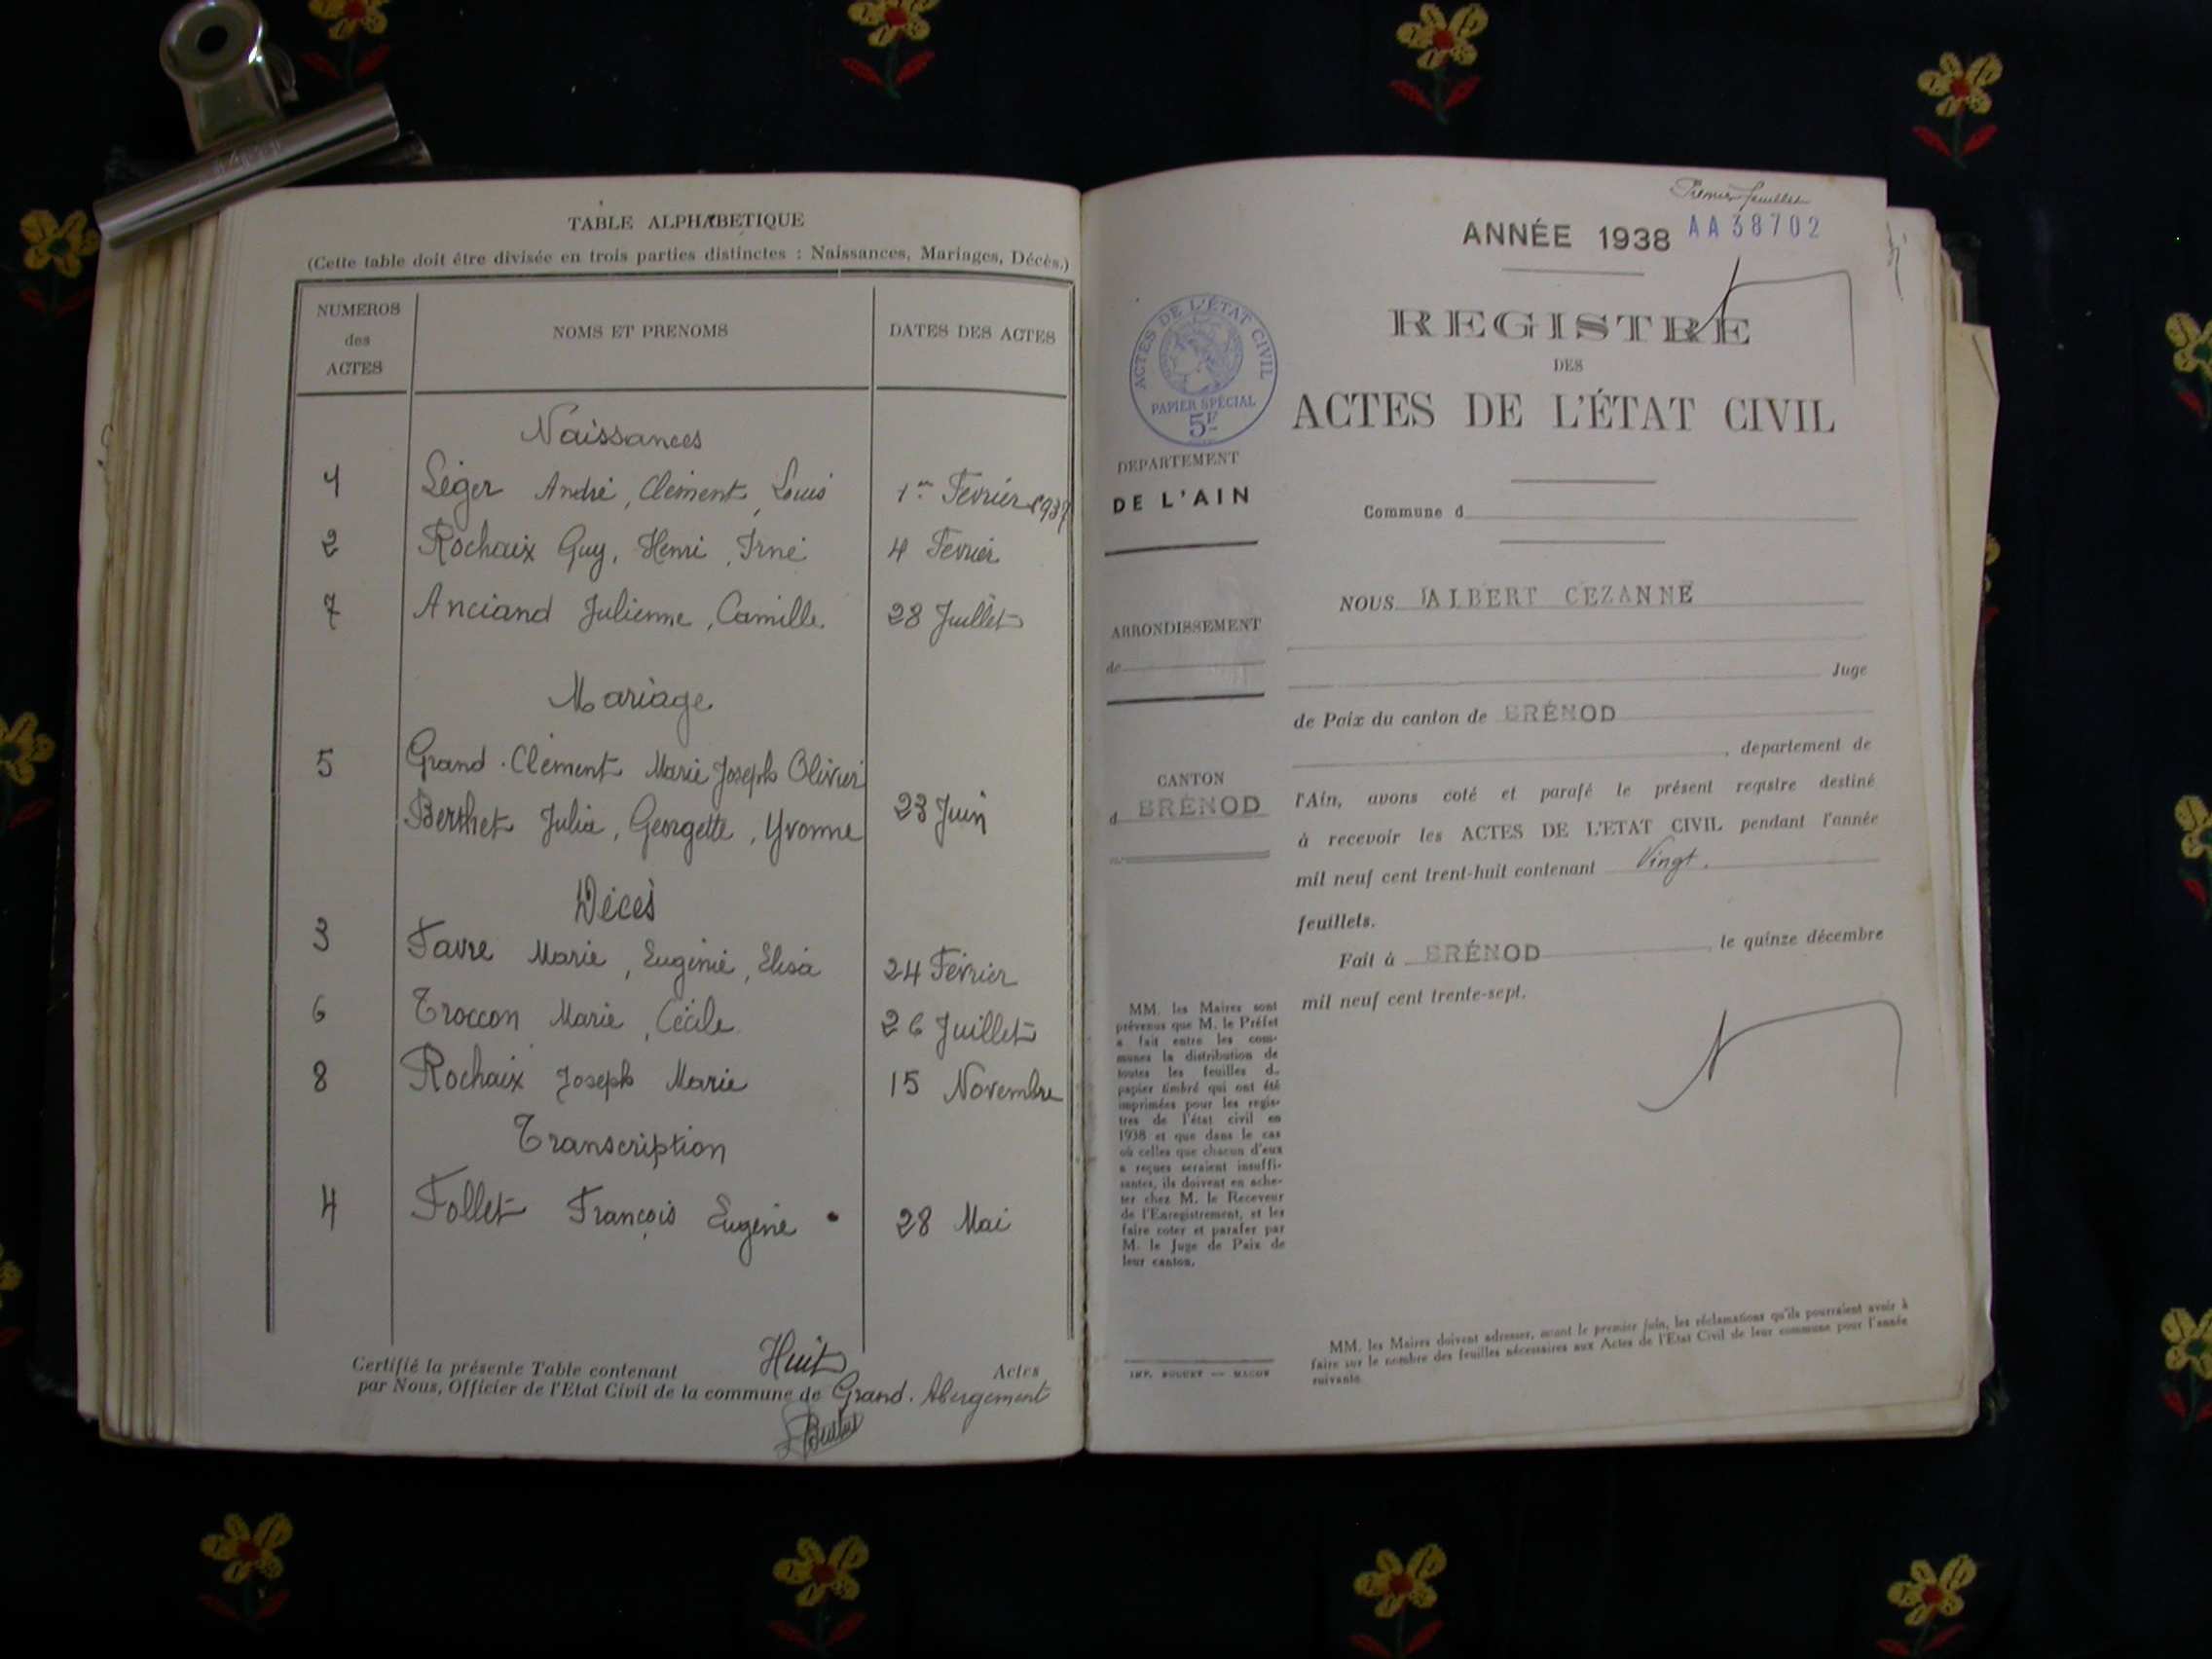 TABLE ALPHABETIQUE
(Cette table doit être divisée en trois parties distinctes : Naissances, Mariages, Décès.)
NUMEROS des ACTES
NOMS ET PRENOMS
DATES DES ACTES
Naissances
1 Léger André, Clément, Louis 1er Février 1937
2 Rochaix Guy, Henri, Irné 4 Fevrier
7 Anciand Julienne, Camille. 28 Juillet
Mariage
5 Grand-Clément Marie Joseph Olivier
Berthet Julia, Georgette, Yvonne 23 Juin
Décès
3 Favre Marie, Eugénie, Elisa 24 Février
6 Troccon Marie, Cécile 26 Juillet
8 Rochaix Joseph Marie 15 Novembre
Transcription
4 Follet François Eugène 28 Mai
Certifié la présente Table contenant Huit Actes
par Nous, Officier de l'Etat Civil de la commune de Grand-Abergement
Premier feuillet
ANNÉE 1938 AA38702
ACTES DE L'ÉTAT CIVIL
PAPIER SPÉCIAL
5F
REGISTRE
DES
ACTES DE L'ÉTAT CIVIL
DEPARTEMENT
DE L'AIN
Commune d
NOUS ALBERT CEZANNE
ARRONDISSEMENT
de
Juge
de Paix du canton de BRÉNOD
, departement de
CANTON
d BRÉNOD
l'Ain, avons coté et parafé le présent registre destiné
à recevoir les ACTES DE L'ETAT CIVIL pendant l'année
mil neuf cent trent-huit contenant Vingt.
feuillets.
Fait à BRÉNOD, le quinze décembre
mil neuf cent trente-sept.
MM. les Maires sont
prévenus que M. le Préfet
a fait entre les com-
munes la distribution de
toutes les feuilles d_
papier timbré qui ont été
imprimées pour les regis-
tres de l'état civil en
1938 et que dans le cas
où celles que chacun d'eux
a reçues seraient insuffi-
santes, ils doivent en ache-
ter chez M. le Receveur
de l'Enregistrement, et les
faire coter et parafer par
M. le Juge de Paix de
leur canton.
MM. les Maires doivent adresser, avant le premier juin, les réclamations qu'ils pourraient avoir à
faire sur le nombre des feuilles nécessaires aux Actes de l'Etat Civil de leur commune pour l'année
suivante.
IMP. BUGUET — MACON